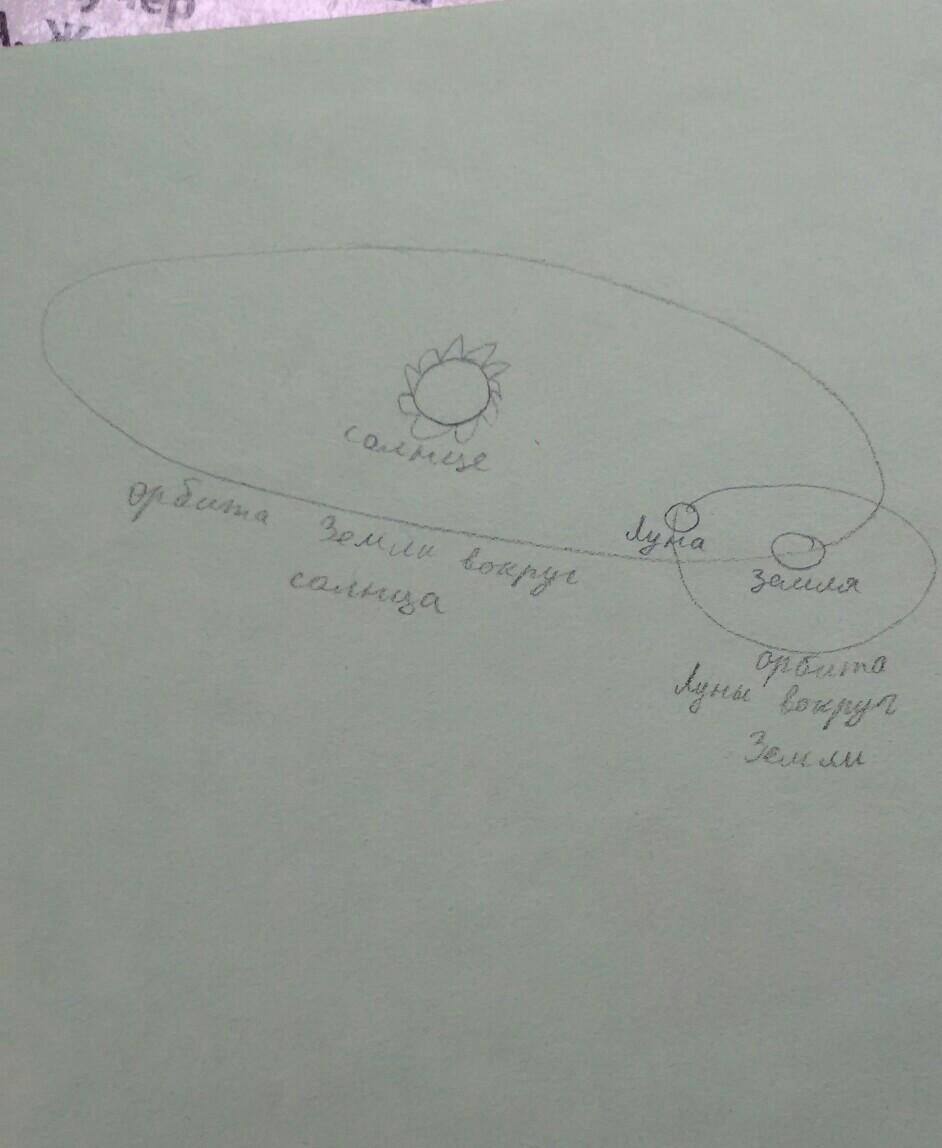 Учер
А. Ж
солнце
орбита Земли вокруг
солнца
Луна
Земля
орбита
Луны вокруг
Земли